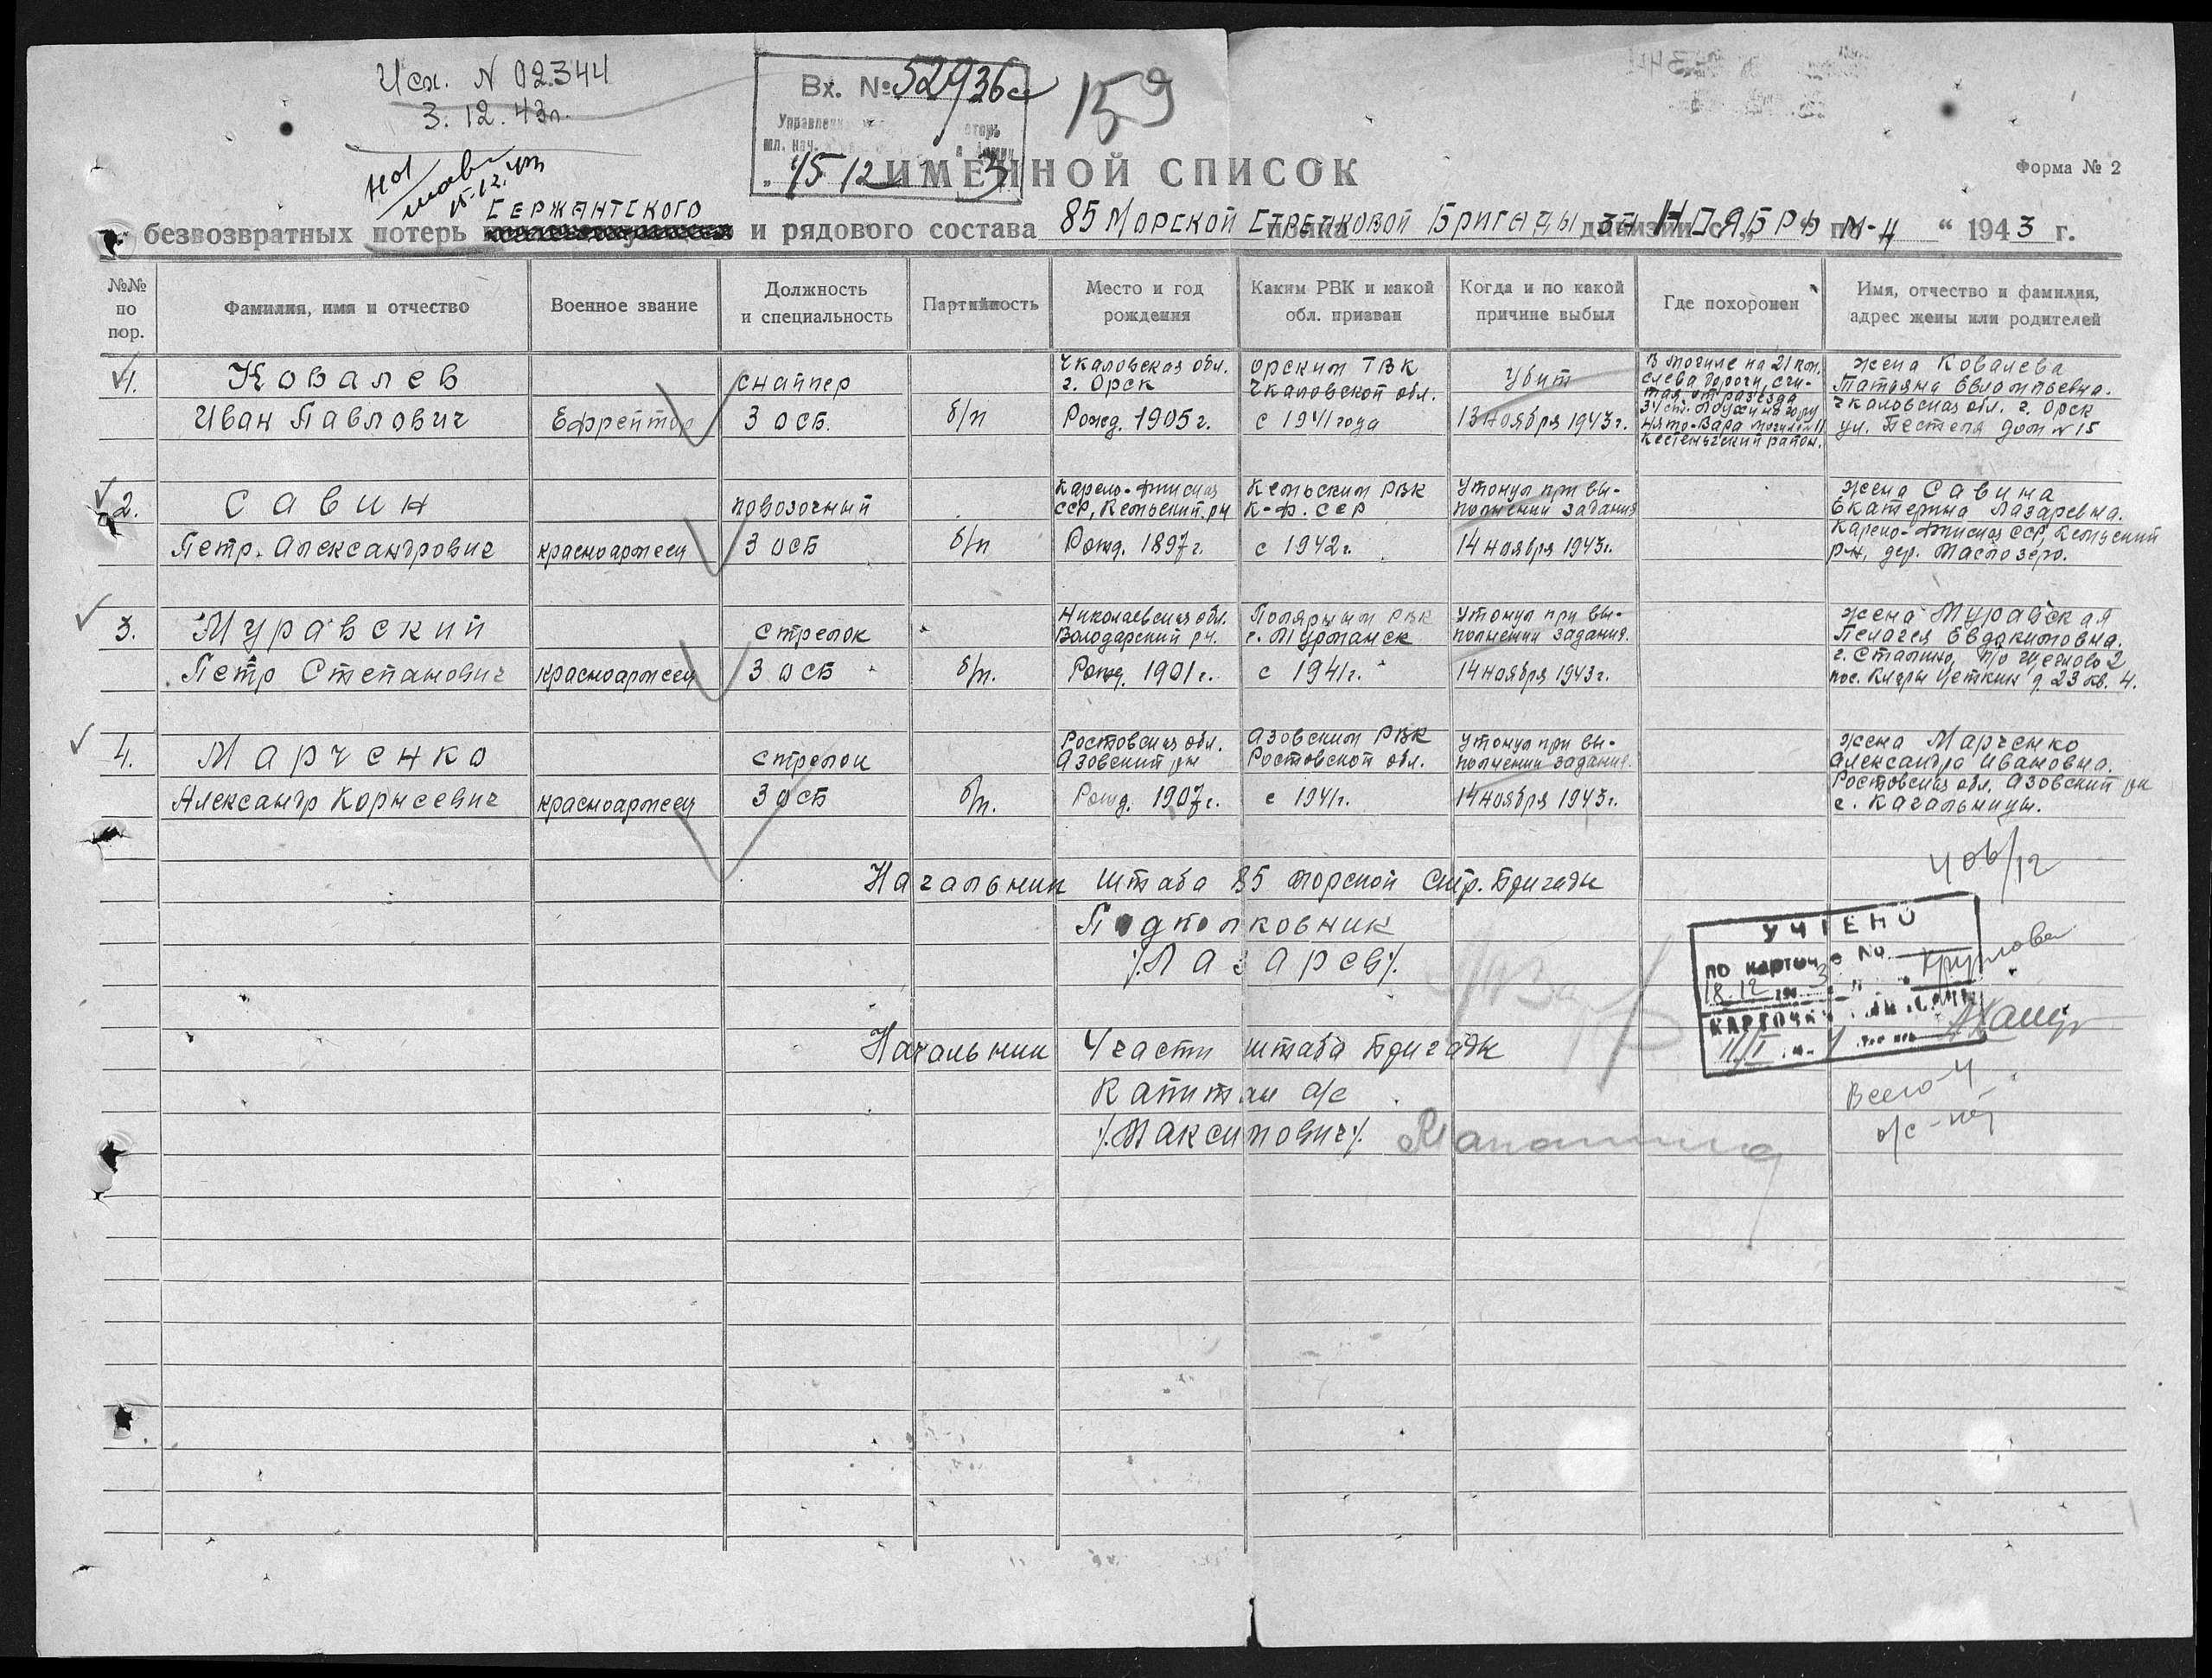 Исх. № 02344
3.12.43г.
Вх. № 52936с
159
Управлени
15 12 3
ИМЕННОЙ СПИСОК
Форма № 2
безвозвратных потерь СЕРЖАНТСКОГО и рядового состава 85 МОРСКОЙ СТРЕЛКОВОЙ БРИГАДЫ ЗА НОЯБРЬ М-Ц 1943 г.
№№ по пор.
Фамилия, имя и отчество
Военное звание
Должность и специальность
Партийность
Место и год рождения
Каким РВК и какой обл. призван
Когда и по какой причине выбыл
Где похоронен
Имя, отчество и фамилия, адрес жены или родителей
1.
Ковалев
Иван Павлович
Ефрейтор
снайпер
3 ОСБ.
б/п
Чкаловская обл.
г. Орск
Рожд. 1905г.
Орским ГВК
Чкаловской обл.
с 1941 года
Убит
13 ноября 1943г.
В могиле на 21 км.
слева дороги, счи-
тая от разъезда
Кестеньгский район.
жена Ковалева
Татьяна Евлампьевна.
Чкаловская обл. г. Орск
ул. Пестеля дом №15
2.
Савин
Петр Александрович
красноармеец
повозочный
3 ОСБ
б/п
Карело-Финская
ССР, Кемский р-н
Рожд. 1897г.
Кемским РВК
К-Ф. ССР
с 1942г.
Утонул при вы-
полнении задания
14 ноября 1943г.
жена Савина
Екатерина Лазаревна.
Карело-Финская ССР, Кемский
р-н, дер. Маслозеро.
3.
Муравский
Петр Степанович
красноармеец
стрелок
3 ОСБ
б/п.
Николаевская обл.
Володарский р-н.
Рожд. 1901г.
Полярным РВК
г. Мурманск
с 1941г.
Утонул при вы-
полнении задания.
14 ноября 1943г.
жена Муравская
Пелагея Евдокимовна.
г. Сталино, п/о
пос. Клары Цеткин д. 23 кв. 4.
4.
Марченко
Александр Корнеевич
красноармеец
стрелок
3 ОСБ
б/п.
Ростовская обл.
Азовский р-н
Рожд. 1907г.
Азовским РВК
Ростовской обл.
с 1941г.
Утонул при вы-
полнении задания.
14 ноября 1943г.
жена Марченко
Александра Ивановна.
Ростовская обл. Азовский р-н
с. Кагальницы.
Начальник Штаба 85 морской Стр. Бригады
Подполковник
/Лазарев/.
УЧТЕНО
по карточке №
18.12 3
КАРТОЧКИ
Начальник 4 части штаба Бригады
Капитан а/с
/Максимович/.
Всего - 4